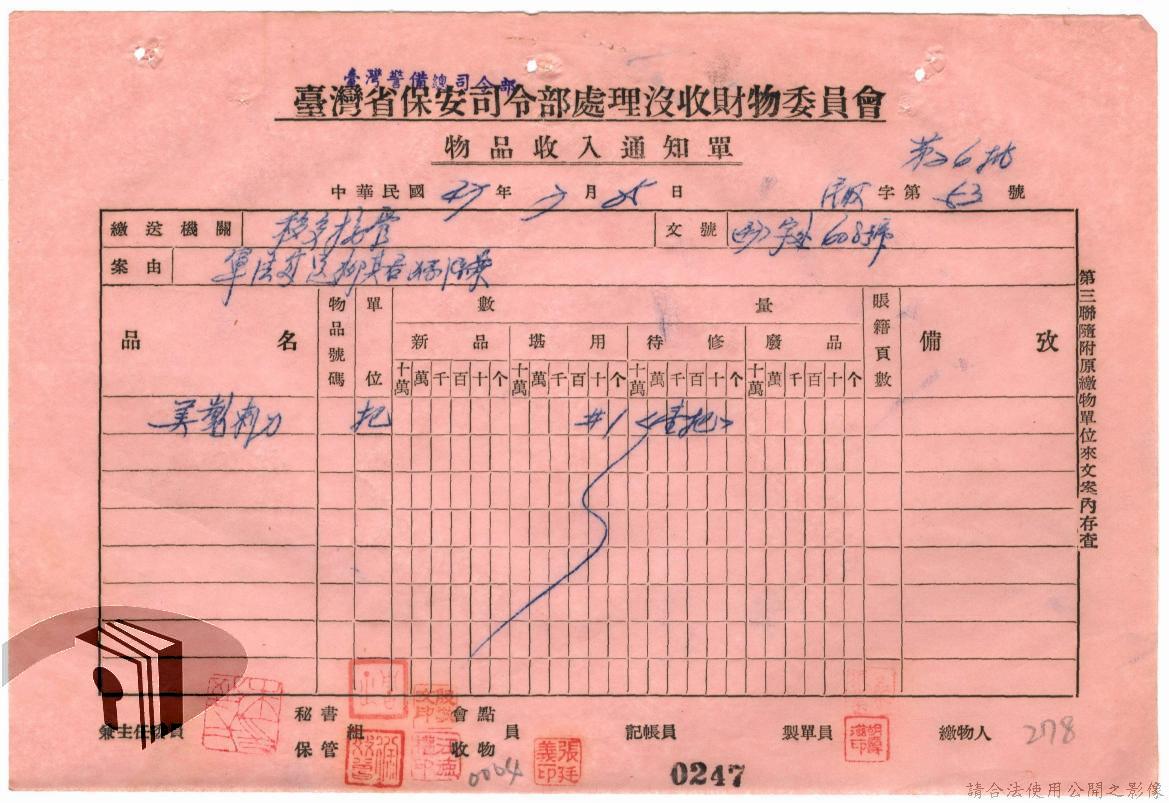 臺灣警備總司令部
臺灣省保安司令部處理沒收財物委員會
物品收入通知單
第6批
中華民國 47 年 7 月 25 日
字第 53 號
繳送機關 移交接管
文號 字 608號
案由
品名 物品號碼 單位 數量 賬籍頁數 備攷
新品 堪用 待修 廢品
十萬 萬 千 百 十 个 十萬 萬 千 百 十 个 十萬 萬 千 百 十 个 十萬 萬 千 百 十 个
美製剃刀 把 #1 <壹把>
第三聯隨附原繳物單位來文案內存查
兼主任委員 秘書 保管組 會點收物員 記帳員 製單員 繳物人
張廷義印
278
0064
0247
請合法使用公開之影像